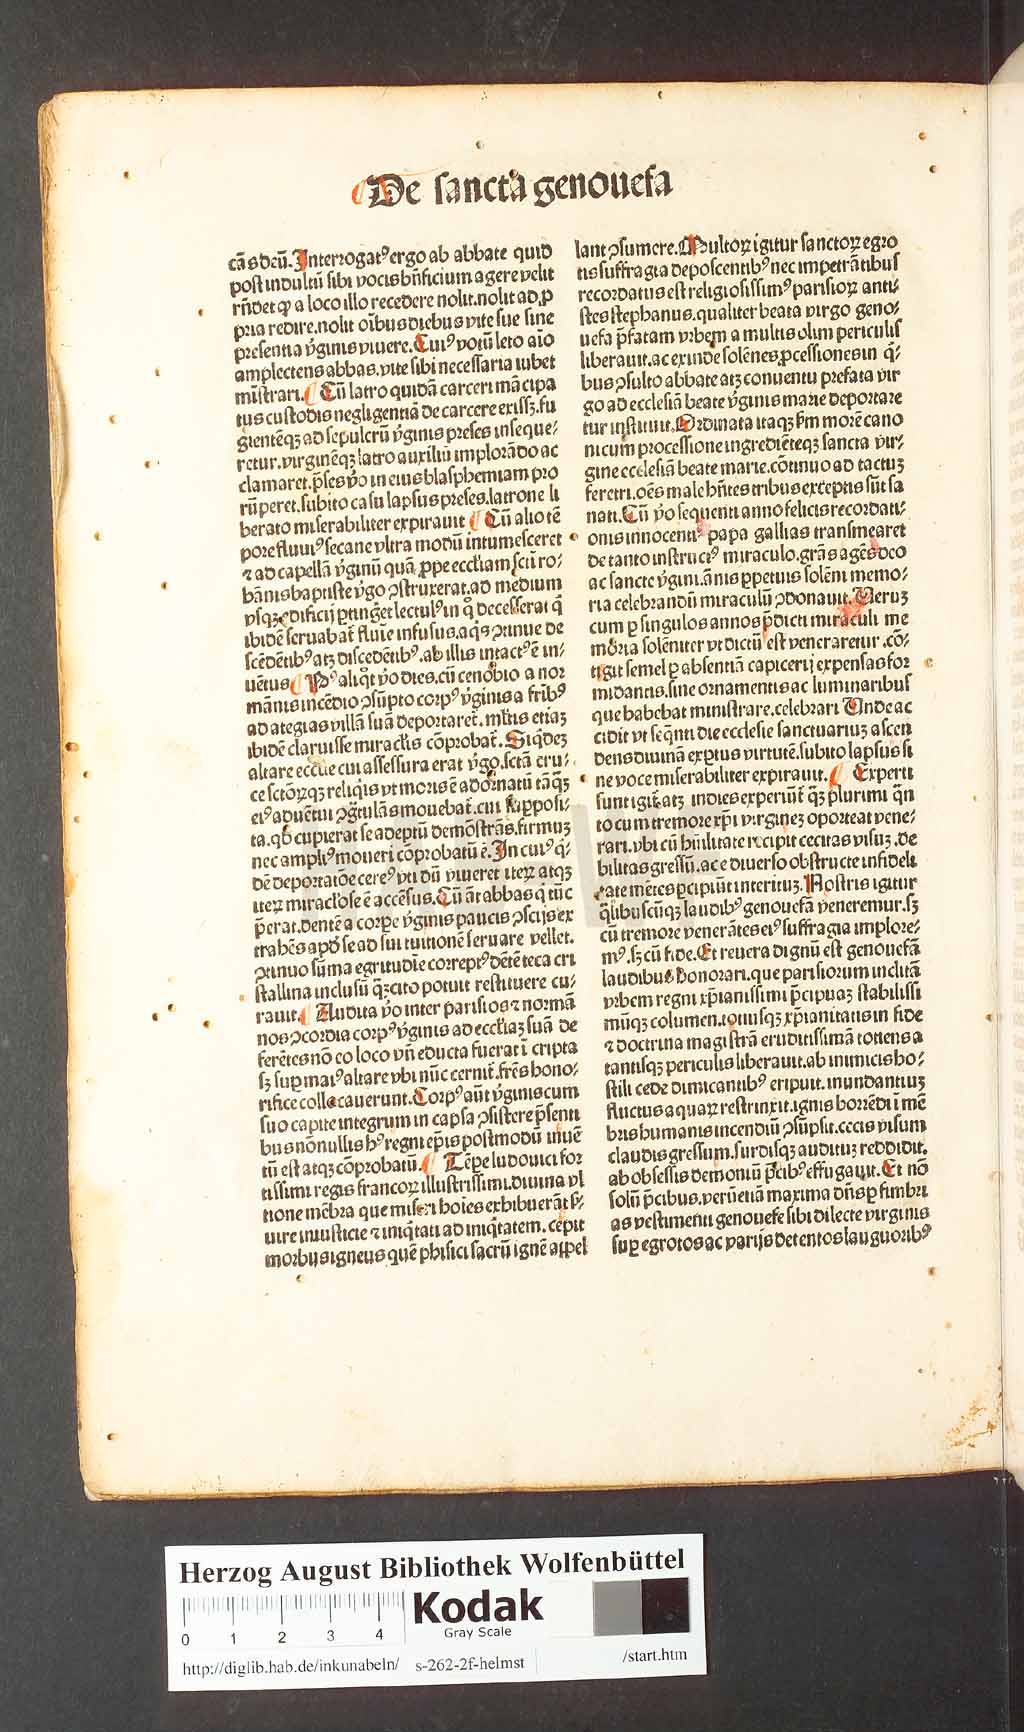 De sancta genouefa
cās deū. Interrogatꝰ ergo ab abbate quid
post indultū sibi vocis bn̄ficium agere velit
rn̄det ꝙ a loco illo recedere nolit. nolit ad ꝓ
pria redire. nolit oībus diebus vite sue sine
presentia v̓ginis viuere. Cuiꝰ votū leto aīo
amplectens abbas. vite sibi necessaria iubet
mīstrari. Cū latro quidā carceri mācipa
tus custodis negligentiā de carcere exissꝫ. fu
gientēqꝫ ad sepulcrū v̓ginis preses inseque⸗
retur. virginēqꝫ latro auxiliū implorādo ac
clamaret. p̄ses v̓o in eius blasphemiam pro
rūperet. subito casu lapsus preses. latrone li
berato miserabiliter expirauit Cū alio tē
pore fluuiꝰ secane vltra modū intumesceret
⁊ ad capellā v̓ginū quā ꝓpe eccliam scti̅ ro⸗
bānis baptiste v̓go ꝯstruxerat. ad medium
vsqꝫ edificij ꝑtinḡet lectulꝰ in q̊ decesserat q̄
ibidē seruabat̄ fluuīe infusus. aq̄s ꝯtinue de
scēdētibꝰ atꝫ discedētibꝰ. ab illis intactꝰ ē in⸗
uētus Pꝰ aliq̊t v̓o dies. cū cenobio a nor
mānis incēdio ꝯsūpto corpꝰ v̓ginis a frībꝰ
ad ategias villā suā deportaret̄. ml̄tis etiaꝫ
ibidē claruisse miracl̄is cōprobat̄. Siq̄deꝫ
altare eccl̄ie cui assessura erat v̓go. sctā cru⸗
ce sctōꝝqꝫ reliq̄is vt moris ē adornatū tāq̄ꝫ
eiꝰ aduētui ꝯḡtulās mouebat̄. cui supposi⸗
ta. qd̄ cupierat se adeptū demōstrās. firmuꝫ
nec ampliꝰ moueri cōprobatū ē. In cuiꝰ q̄⸗
dē deportatōe cereꝰ vti dū viueret iteꝝ atqꝫ
iteꝝ miracl̄ose ē accēsus. Cū āt abbas q tūc
p̄erat. dentē a corꝑe v̓ginis paucis ꝯscijs ex
trahēs apd̄ se ad sui tuitionē seruare vellet.
ꝯtinuo sūma egritudīe correptꝰ dētē teca cri
stallina inclusū q̄ꝫcito potuit restituere cu⸗
rauit. Audita v̓o inter parisios ⁊ normā
nos ꝯcordia corpꝰ v̓ginis ad eccl̄iaꝫ suā de
ferētes nō eo loco vn̄ educta fuerat ī cripta
sꝫ suꝑ maiꝰ altare vbi nūc cernit̄. frēs hono⸗
rifice collocauerunt. Corpꝰ aūt v̓ginis cum
suo capite integrum in capsa ꝯsistere p̄senti
bus nōnullis hꝰ regni ep̄is postmodū inuē
tū est atqꝫ cōprobatū. Tēpe ludouici for
tissimi regis francoꝝ illustrissimi. diuina vl
tione mēbra que miseri hoīes exhibuerāt s̄⸗
uire iniusticie ⁊ iniq̄tati ad iniq̄tatem. cepit
morbus igneus quē phisici sacrū ignē appel
lant ꝯsumere. Multoꝝ igitur sanctoꝝ egro
tis suffragia deposcentibꝰ nec impetrātibus
recordatus est religiosissimꝰ parisioꝝ anti⸗
stes stephanus. qualiter beata virgo geno⸗
uefa p̄fatam vrbem a multis olim periculis
liberauit. ac exinde solēnes ꝓcessiones in q̄⸗
bus ꝯsulto abbate atꝫ conuentu prefata vir
go ad ecclesiā beate v̓ginis marie deportare
tur instituit. Ordinata itaqꝫ ẜm morē cano
nicum processione ingrediēteqꝫ sancta vir⸗
gine ecclesiā beate marie. cōtinuo ad tactuꝫ
feretri. oēs male hn̄tes tribus exceptis sūt sa
nati. Cū v̓o sequenti anno felicis recordati⸗
onis innocentiꝰ papa gallias transmearet
de tanto instructꝰ miraculo. grās agēs deo
ac sancte v̓gini. ānis ꝑpetuis solēni memo⸗
ria celebrandū miraculū ꝯdonauit. Ueruꝫ
cum ꝑ singulos annos p̄dicti miraculi me
moria solēniter vt dictū est veneraretur. cō⸗
tigit semel ꝑ absentiā capicerij expensas for
midantis. sine ornamentis ac luminaribus
que habebat ministrare. celebrari Unde ac
cidit vt seq̄nti die ecclesie sanctuariuꝫ ascen
dens diuinā exꝑtus virtutē. subito lapsus si
ne voce miserabiliter expirauit. Experti
sunt igit̄ atꝫ indies experiūt̄ q̄ꝫ plurimi q̄n
to cum tremore xp̄i virgineꝫ oporteat vene⸗
rari. vbi cū hūilitate recipit cecitas visuꝫ. de
bilitas gressū. ac e diuerso obstructe infideli
tate mētes ꝑcipiūt interituꝫ. Nostris igitur
qībuscūqꝫ laudibꝰ genouefā veneremur. sꝫ
cū tremore venerātes eiꝰ suffragia implore⸗
mꝰ. sꝫ cū fide. Et reuera dignū est genouefā
laudibus honorari. que parisiorum inclitā
vrbem regni xp̄ianissimi p̄cipuaꝫ stabilissi
mūqꝫ columen. totiusqꝫ xp̄ianitatis in fide
⁊ doctrina magistrā eruditissimā totiens a
tantisqꝫ periculis liberauit. ab inimicis ho⸗
stili cede dimicantibꝰ eripuit. inundantiuꝫ
fluctus aquaꝝ restrinxit. ignis horrēdi ī mē
bris humanis incendiū ꝯsūpsit. cecis visum
claudis gressum. surdisqꝫ audituꝫ reddidit.
ab obsessis demoniū p̄cibꝰ effugauit. Et nō
solū p̄cibus. verūetiā maxima dn̄s ꝑ fimbri
as vestimenti genouefe sibi dilecte virginis
suꝑ egrotos ac varijs detentos languoribꝰ
HAB-WF
Herzog August Bibliothek Wolfenbüttel
0 1 2 3 4
Kodak
Gray Scale
http://diglib.hab.de/inkunabeln/ s-262-2f-helmst /start.htm